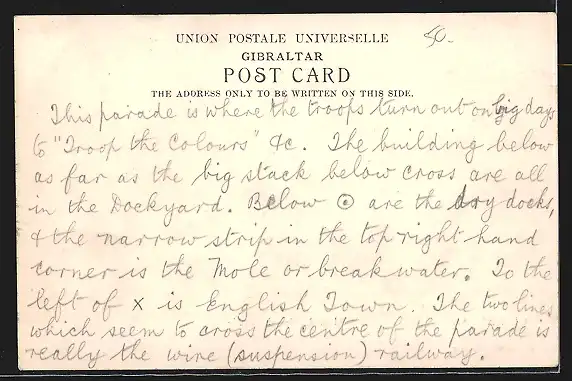 UNION POSTALE UNIVERSELLE
50-
GIBRALTAR
POST CARD
THE ADDRESS ONLY TO BE WRITTEN ON THIS SIDE.
This parade is where the troops turn out on big days
to "Troop the Colours" &c. The building below
as far as the big stack below cross are all
in the Dockyard. Below ⊙ are the dry docks,
& the narrow strip in the top right hand
corner is the Mole or breakwater. To the
left of x is English Town. The two lines
which seem to cross the centre of the parade is
really the wire (suspension) railway.